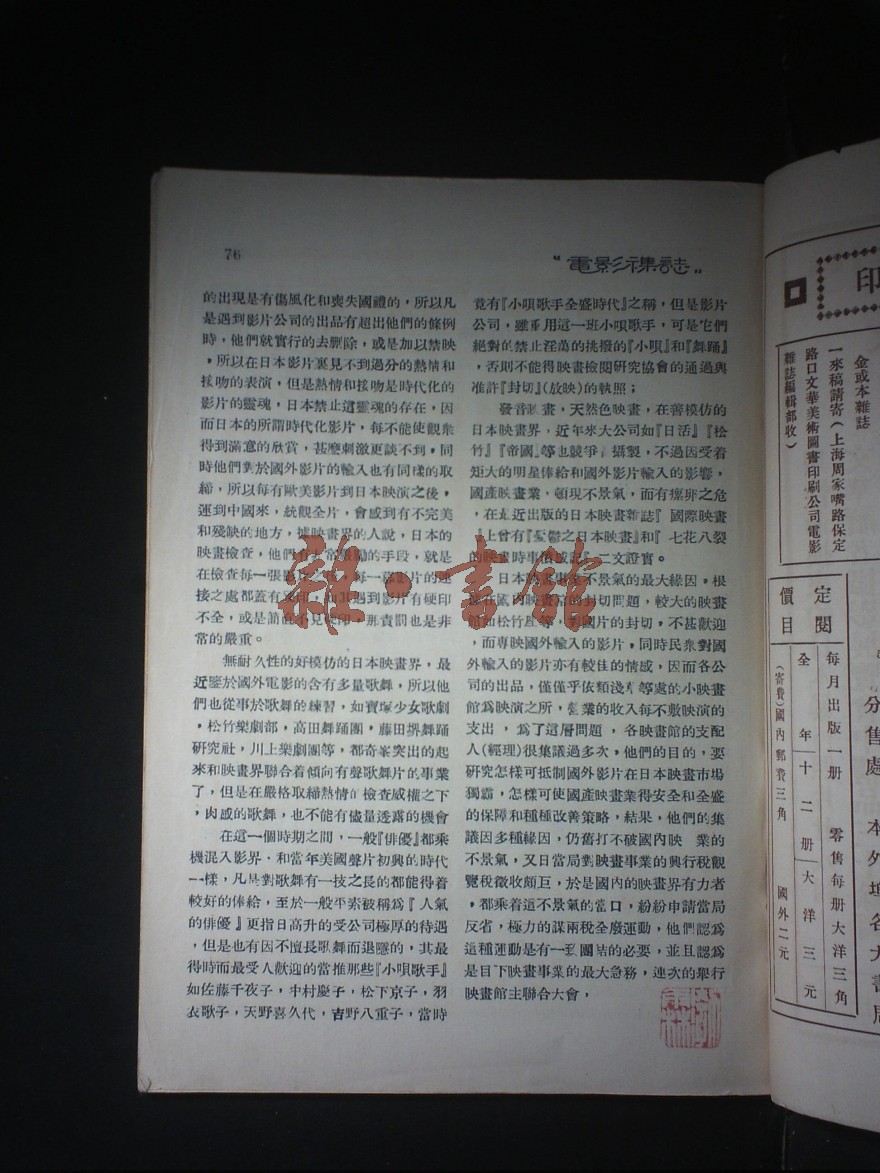 76
"電影襍誌"
的出現是有傷風化和喪失國禮的，所以凡
是遇到影片公司的出品有超出他們的條例
時，他們就實行的去刪除，或是加以禁映
，所以在日本影片裏見不到過分的熱情和
接吻的表演，但是熱情和接吻是時代化的
影片的靈魂，日本禁止這靈魂的存在，因
而日本的所謂時代化影片，每不能使觀衆
得到滿意的欣賞，甚麽刺激更談不到，同
時他們對於國外影片的輸入也有同樣的取
締，所以每有歐美影片到日本映演之後，
運到中國來，統觀全片，會感到有不完美
和殘缺的地方，據映畫界的人說，日本的
映畫檢查，他們有 常嚴 的手段，就是
在檢查每一張影片之 ，每一幕影片的連
接之處都蓋有 印， 其遇到影片有硬印
不全，或是簡直不見硬印，那責罰也是非
常的嚴重。
無耐久性的好模仿的日本映畫界，最
近鑒於國外電影的含有多量歌舞，所以他
們也從事於歌舞的練習，如寶塚少女歌劇
，松竹樂劇部，高田舞踊團，藤田堺舞踊
研究社，川上樂劇團等，都奇峯突出的起
來和映畫界聯合着傾向有聲歌舞片的事業
了，但是在嚴格取締熱情的檢查威權之下
，肉感的歌舞，也不能有儘量透露的機會
在這一個時期之間，一般『俳優』都乘
機混入影界，和當年美國聲片初興的時代
一樣，凡是對歌舞有一技之長的都能得着
較好的俸給，至於一般平素被稱爲『人氣
的俳優』更指日高升的受公司極厚的待遇
，但是也有因不擅長歌舞而退隱的，其最
得時而最受人歡迎的當推那些『小唄歌手』
如佐藤千夜子，中村慶子，松下京子，羽
衣歌子，天野喜久代，吉野八重子，當時
竟有『小唄歌手全盛時代』之稱，但是影片
公司，雖重用這一班小唄歌手，可是它們
絕對的禁止淫蕩的挑撥的『小唄』和『舞踊』
，否則不能得映畫檢閱研究協會的通過與
准許『封切』（放映）的執照；
發音映畫，天然色映畫，在善模仿的
日本映畫界，近年來大公司如『日活』『松
竹』『帝國』等也競爭 攝製，不過因受着
矩大的明星俸給和國外影片輸入的影響，
國產映畫業，頓現不景氣，而有瘝痹之危
，在最近出版的日本映畫雜誌『國際映畫
』上曾有『憂鬱之日本映畫』和『七花八裂
的映畫時事 感 』二文證實。
日本映畫界 不景氣的最大緣因，根
在國內映畫 的封切問題，較大的映畫
如松竹座等，對國片的封切，不甚歡迎
，而專映國外輸入的影片，同時民衆對國
外輸入的影片亦有較佳的情感，因而各公
司的出品，僅僅乎依賴淺草等處的小映畫
館爲映演之所，營業的收入每不敷映演的
支出，爲了這層問題，各映畫館的支配
人（經理）很集議過多次，他們的目的，要
研究怎樣可抵制國外影片在日本映畫市場
獨霸，怎樣可使國產映畫業得安全和全盛
的保障和種種改善策略，結果，他們的集
議因多種緣因，仍舊打不破國內映 業的
不景氣，又日當局對映畫事業的興行稅觀
覽稅徵收頗巨，於是國內的映畫界有力者
，都乘着這不景氣的當口，紛紛申請當局
反省，極力的謀兩稅全廢運動，他們認爲
這種運動是有一致團結的必要，並且認爲
是目下映畫事業的最大急務，連次的舉行
映畫館主聯合大會，
雜·書館
印
金或本雜誌
一來稿請寄（上海周家嘴路保定
路口文華美術圖書印刷公司電影
雜誌編輯部收）
定閱
價目
每月出版一册 零售每册大洋三角
全年十二册大洋三元
（寄費）國內郵費三角 國外二元
分售處 本外埠各大書局